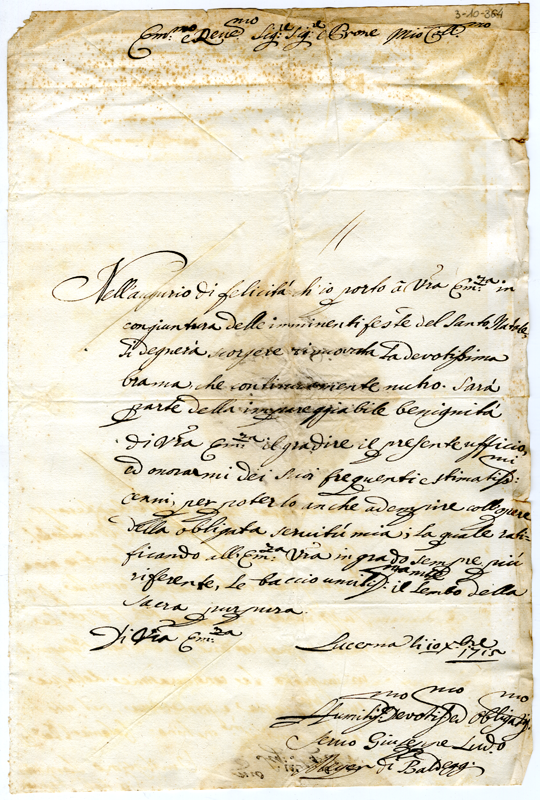 3-10-384
Em.mo e Reue.mo Sig.r Sig.r e Prone mio Coll.mo
Nell'augurio di felicità ch'io porto à Vra Em.za in
congiuntura delle imminenti feste del Santo Natale,
Si degnerà scorgere rinovata la devotissima
brama, che continuamente nutro. Sarà
parte della impareggiabile benignità
di Vra Em.za il gradire il presente ufficio,
ed onorarmi dei suoi frequenti e stimatiss.mi
cenni, per poterlo anche adempire coll'opere
della obligata servitù mia; La quale rati-
ficando all'Em.za Vra in grado sempre più
riferente, Le baccio umiliss.mamte il Lembo della
sacra purpura.
Di Vra Em.za
Lucerna li 10 Xbre
1715
Humiliss.mo Devotiss.mo ed Obligatiss.mo
Servo Giuseppe Lud.o
Mayer di Baldegg.